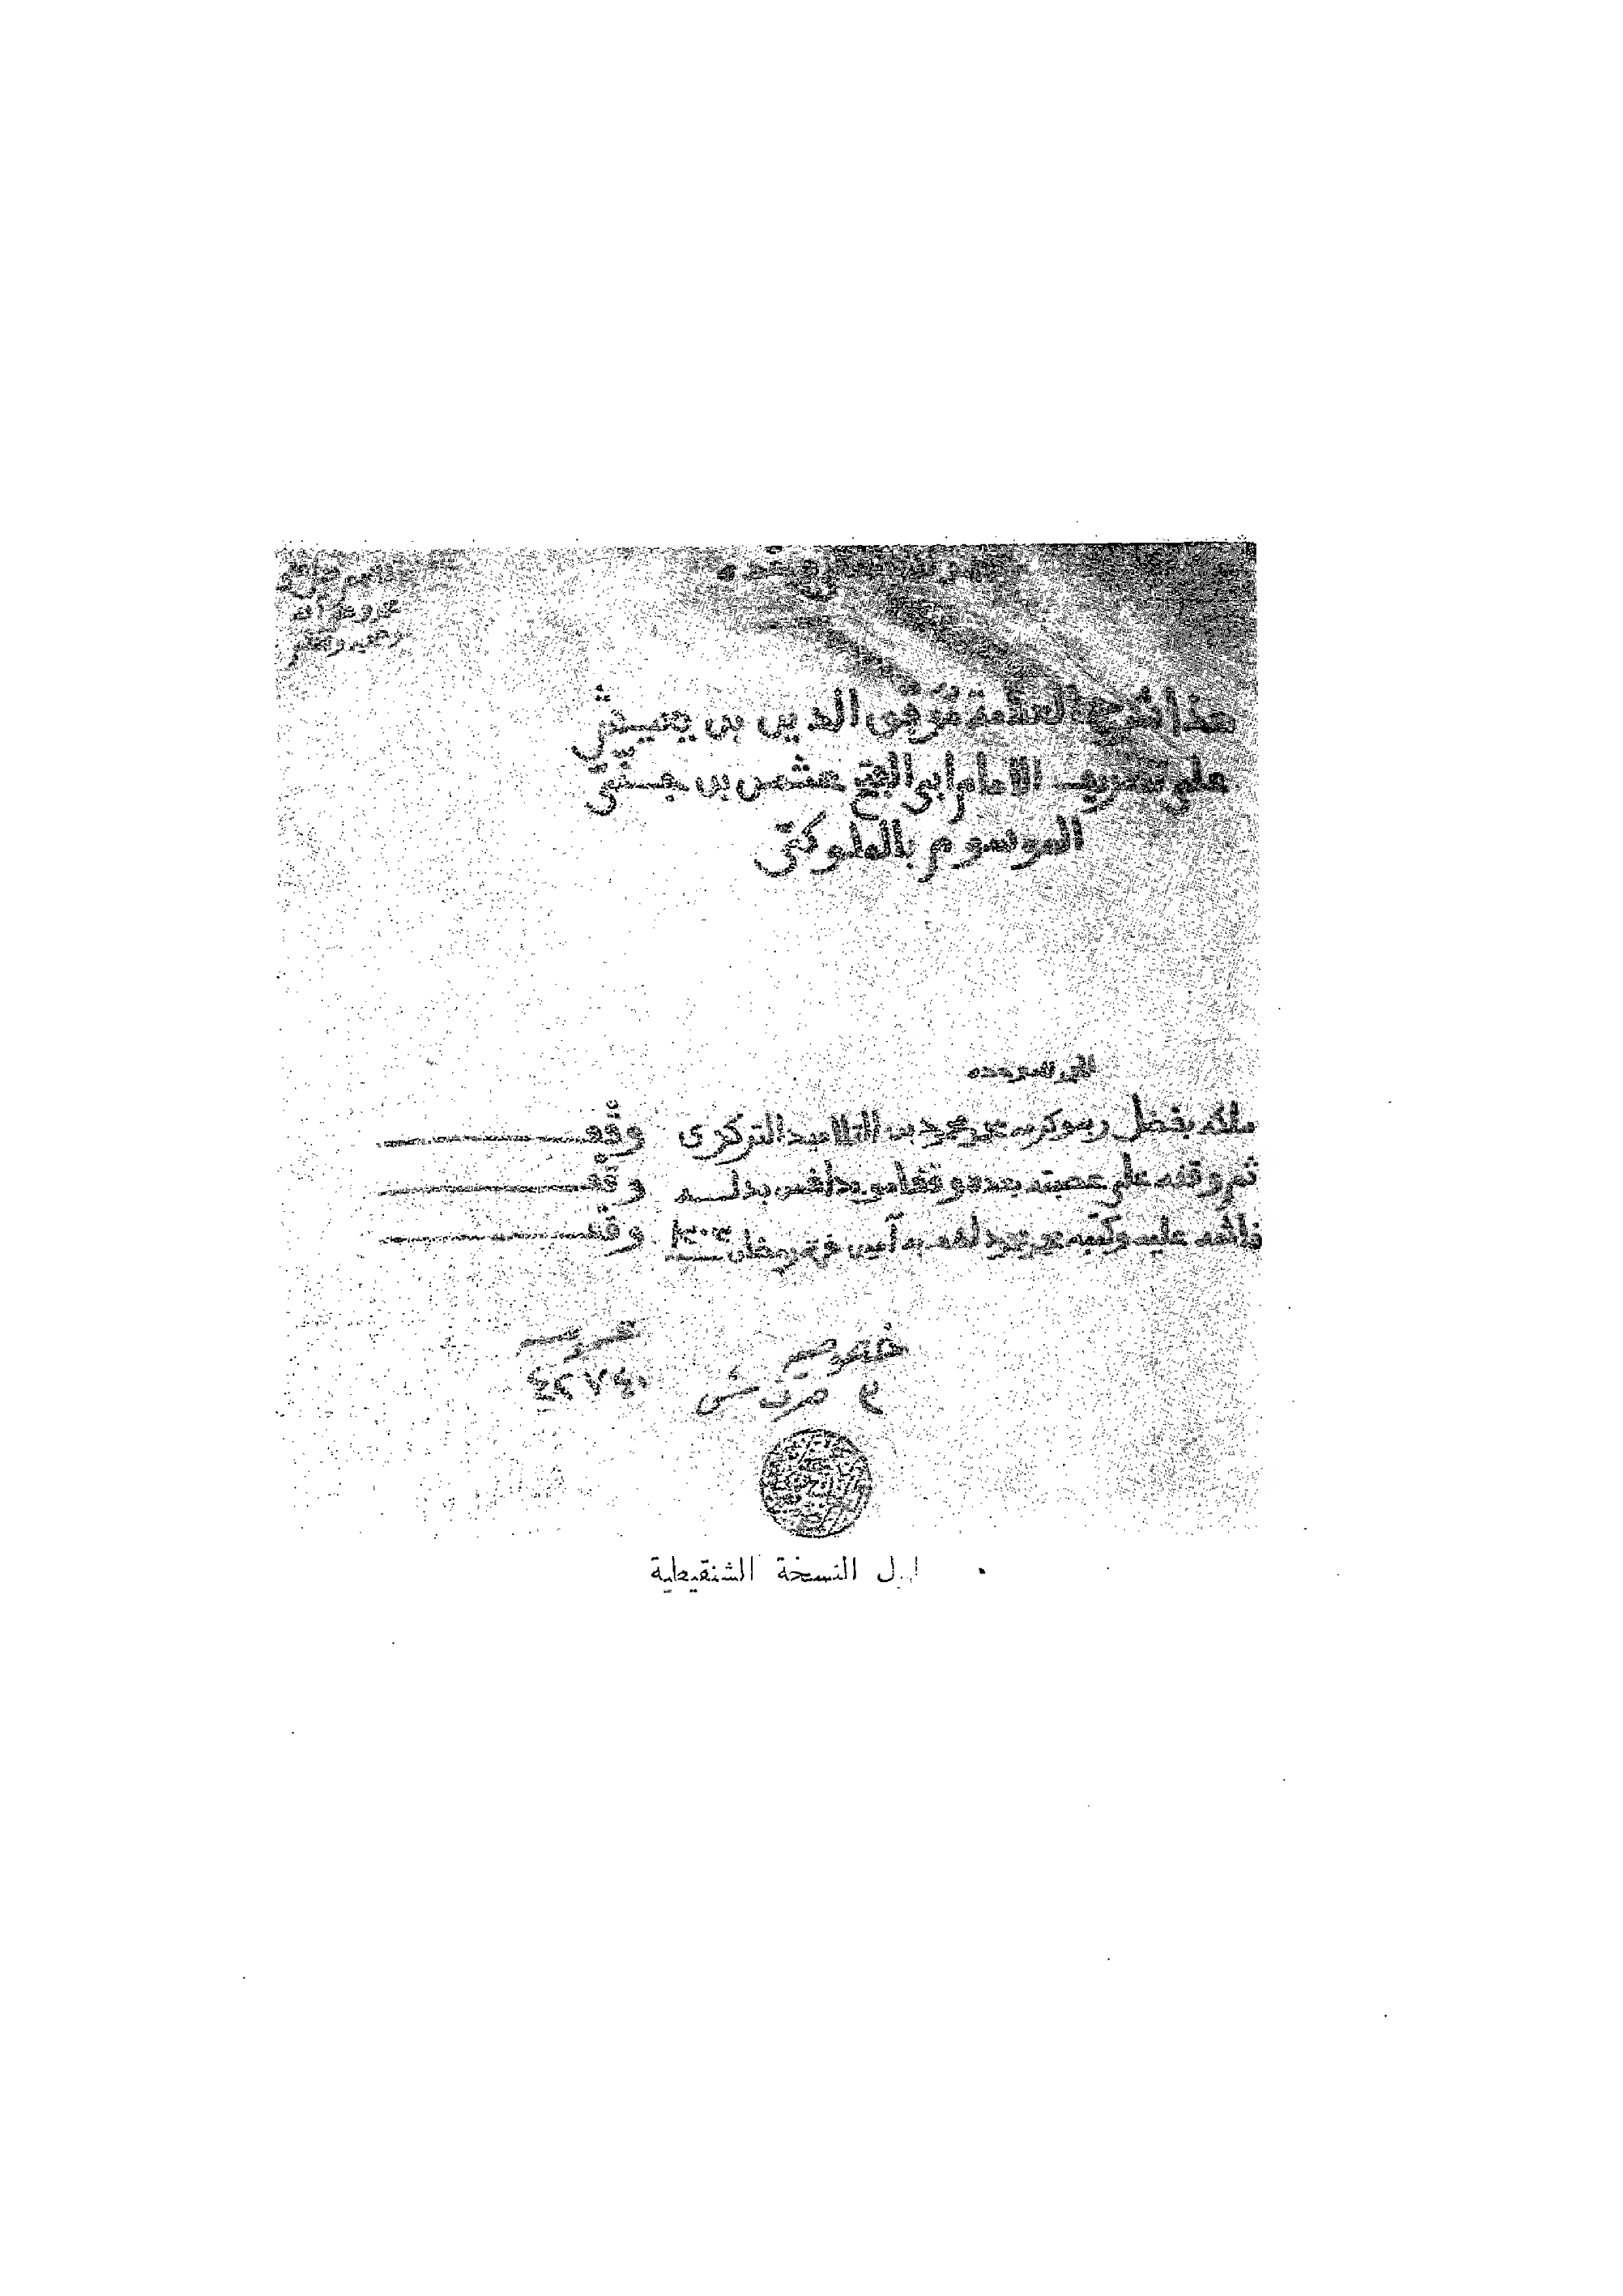 هذا شرح العلامة موفق الدين بن يعيش
على تصريف الامام ابي الفتح عثمن بن جني
الموسوم بالملوكي
الحمد لله وحده
ملكه بفضل ربه وكرمه محمد محمود بن التلاميد التركزي وقف
ثم وقفه على عصبته بعده وقفا مؤبدا فمن بدله وقف
فاثمه عليه وكتبه محمد محمود لطف به آمين رمضان وقف
خصوصية عمومية
٢ صرف ش ٤٢٧٤٠
اول النسخة الشنقيطية